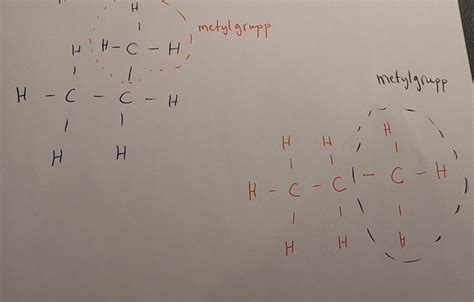 H
metylgrupp
H H - C - H
H - C - C - H
H H
metylgrupp
H H H
H - C - C - C - H
H H H